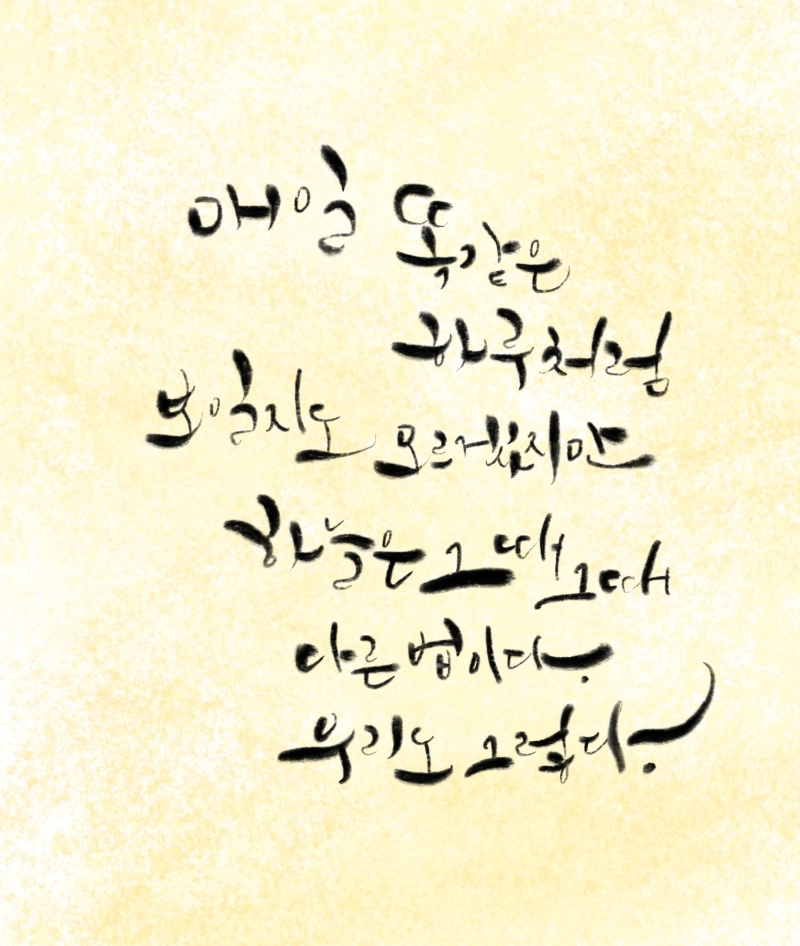 매일 똑같은
하루처럼
보일지도 모르겠지만
하늘은 그때 그때
다른 법이다.
우리도 그렇다.